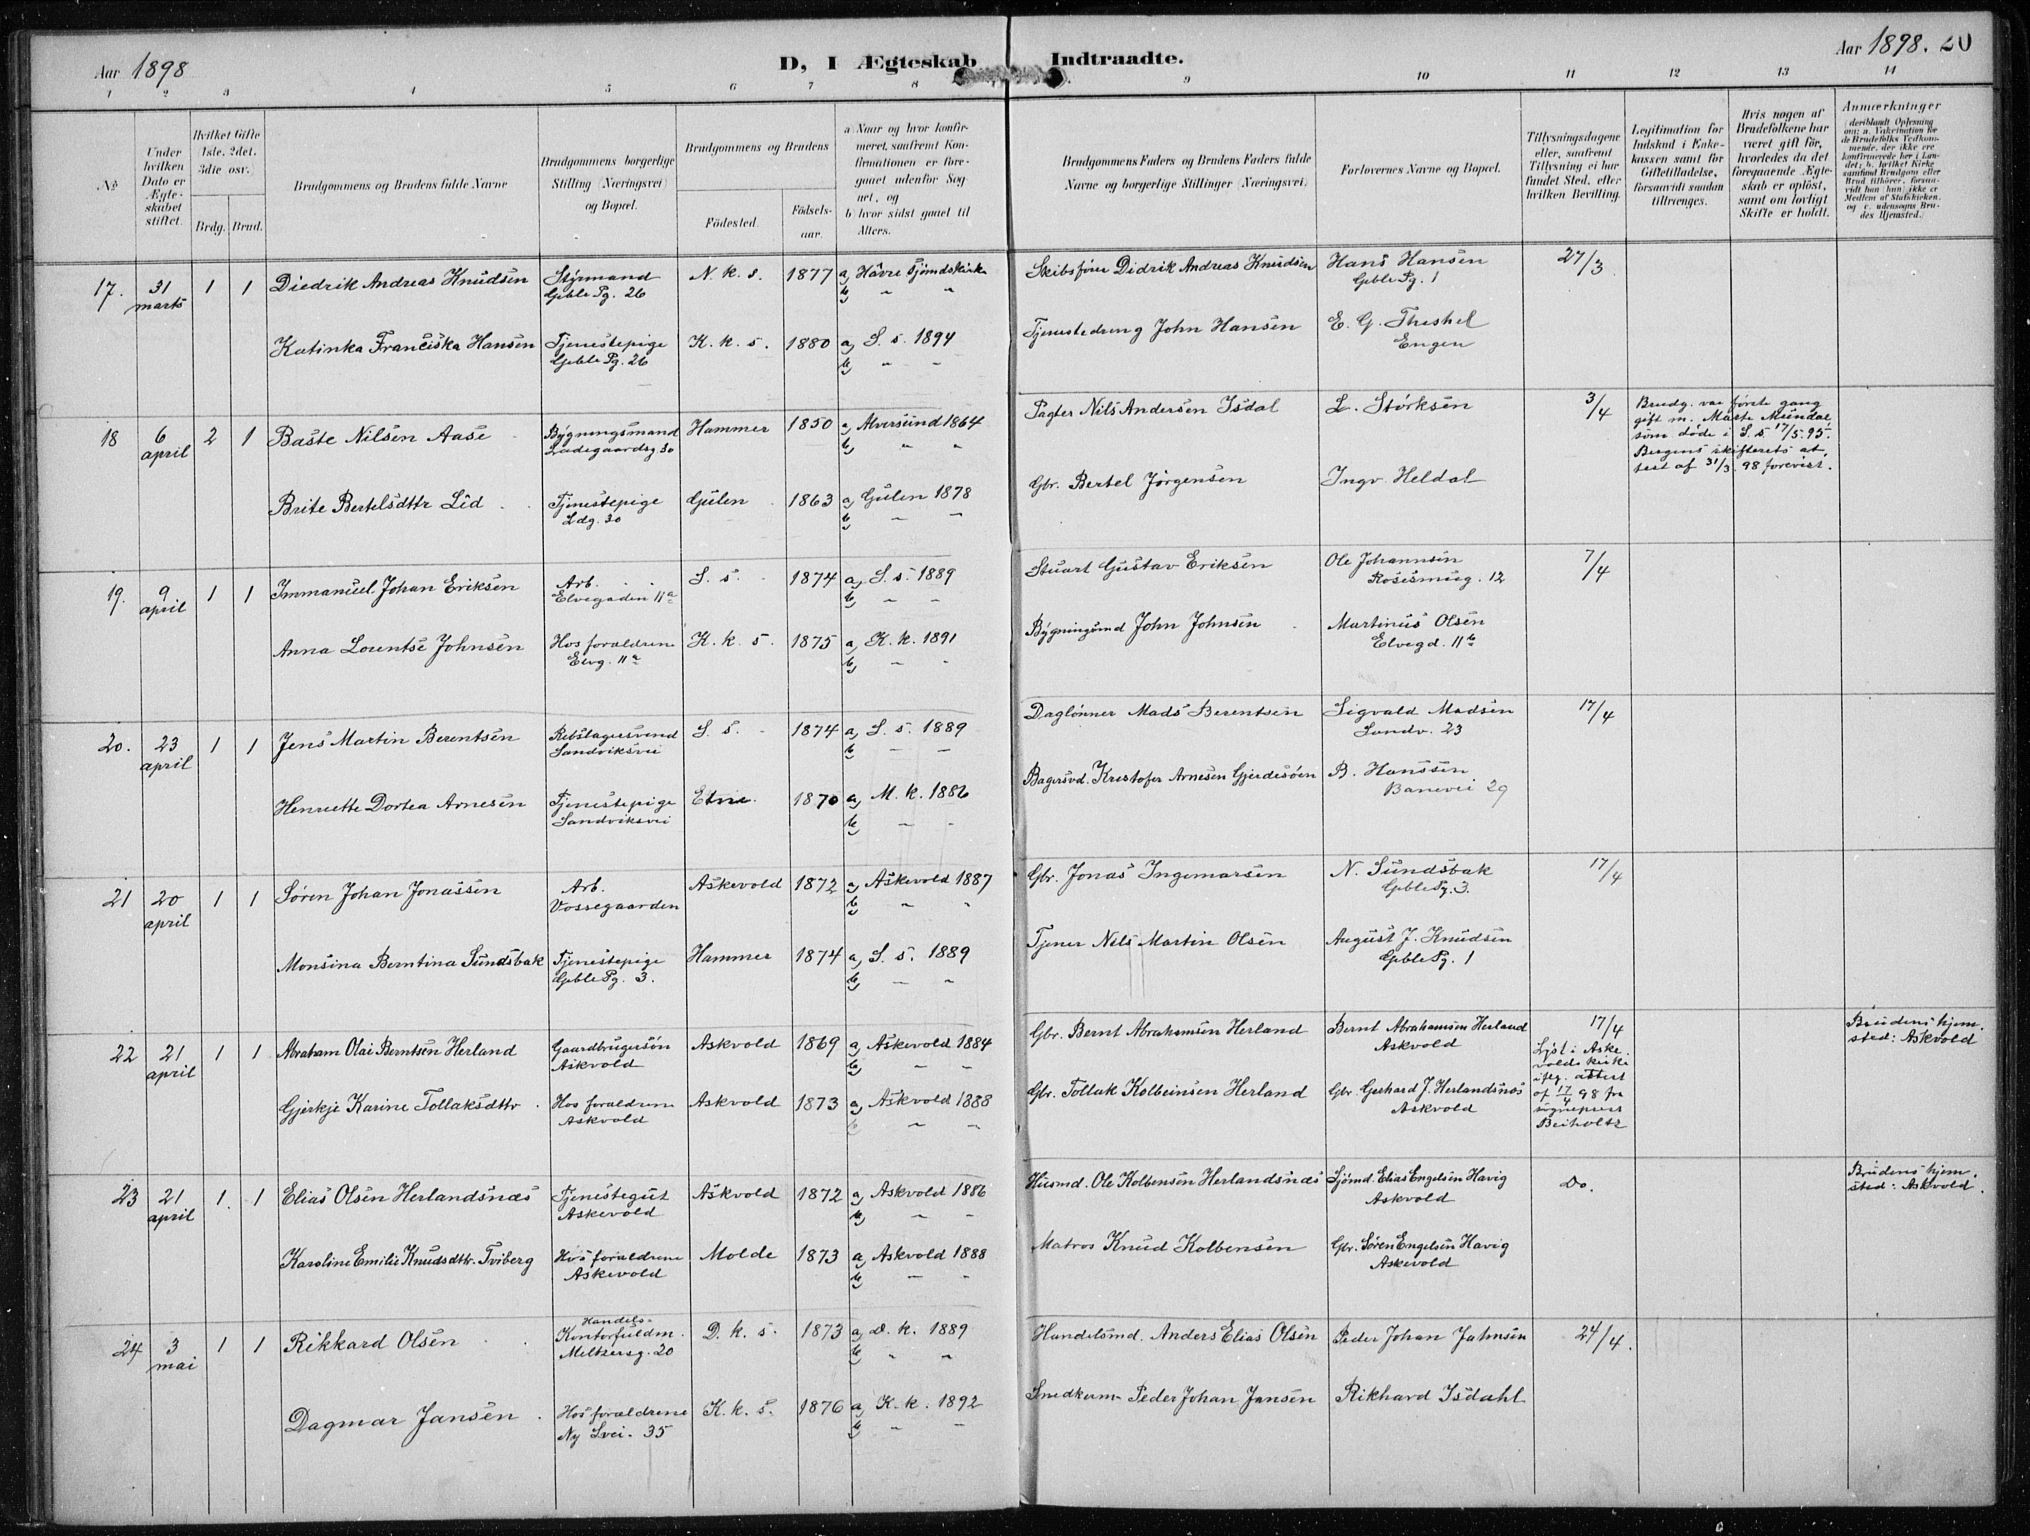 Aar 1898
D, I Ægteskab Indtraadte.
Aar 1898. 20
1 2 3 4 5 6 7 8 9 10 11 12 13 14
No
Under hvilken Dato er Ægteskabet stiftet.
Hvilket Gifte 1ste, 2det, 3die osv.
Brdg. Brud.
Brudgommens og Brudens fulde Navne
Brudgommens borgerlige Stilling (Næringsvei) og Bopæl.
Brudgommens og Brudens
Födested.
Födselsaar.
a) Naar og hvor konfirmeret, saafremt Konfirmationen er foregaaet udenfor Sognet, og
b) hvor sidst gaaet til Alters.
Brudgommens Faders og Brudens Faders fulde Navne og borgerlige Stillinger (Næringsvei).
Forlovernes Navne og Bopæl.
Tillysningsdagene eller, saafremt Tillysning ei har fundet Sted, efter hvilken Bevilling.
Legitimation for Indskud i Enkekassen samt for Giftetilladelse, forsaavidt saadan tiltrænges.
Hvis nogen af Brudefolkene har været gift för, hvorledes da det foregaaende Ægteskab er oplöst, samt om lovligt Skifte er holdt.
Anmærkninger (deriblandt Oplysning om: a. Vakcination for de Brudefolks Vedkommende, der ikke ere konfirmerede her i Landet; b. hvilket Kirkesamfund Brudgom eller Brud tilhörer, forsaavidt han (hun) ikke er Medlem af Statskirken, og c. udensogns Brudes Hjemsted.)
17. 31 marts 1 1 Diedrik Andreas Knudsen Styrmand Gble Pg. 26 N. k. s. 1877 a) Håvre Sjömdskirke b) " "
Skibsfören Didrik Andreas Knudsen Hans Hansen Gble Pg. 1 27/3
Katinka Franciska Hansen Tjenestepige Gble Pg. 26 K. k. s. 1880 a) S. s. 1894 b) " "
Tjenestedreng John Hansen E. G. Theshel Engen
18 6 april 2 1 Baste Nilsen Aase Bygningsmand Ladegaardsg. 30 Hammer 1850 a) Alversund 1864 b) " "
Pagter Nils Andersen Isdal L. Störksen 3/4 Brudg. var förste gang gift m. Marte Mundal, som döde i S. s 17/5 95. Bergens skifterets attest af 31/3 98 forevist.
Brite Bertelsdttr Lid Tjenestepige Ldg. 30 Gulen 1863 a) Gulen 1878 b) " "
Gbr. Bertel Jörgensen Ingv. Heldal
19. 9 april 1 1 Immanuel Johan Eriksen Arb. Elvegaden 11a S. s. 1874 a) S. s. 1889 b) " "
Stuart Gustav Eriksen Ole Johannsen Rosesmug. 12 7/4
Anna Lorentse Johnsen Hos foraldrene Elvg. 11a K. k. s. 1875 a) K. k. 1891 b) " "
Bygningsmd John Johnsen Martinus Olsen Elvegd. 11b
20. 23 april 1 1 Jens Martin Berentsen Rebslagersvend Sandviksvei S. s. 1874 a) S. s. 1889 b) " "
Daglönner Mads Berentsen Sigvald Madsen Sandv. 23 17/4
Henriette Dortea Arnesen Tjenestepige Sandviksvei Etne. 1870 a) M. k. 1886 b) " "
Bagersvd. Krestofer Arnesen Gjerdesöen B. Hanssen Banevei 29
21 20 april 1 1 Sören Johan Jonassen Arb. Vossegaarden Askevold 1872 a) Askevold 1887 b) " "
Gbr. Jonas Ingemarsen N. Sundsbak Gble Pg. 3. 17/4
Monsina Berntina Sundsbak Tjenestepige Gble Pg. 3. Hammer 1874 a) S. s. 1889 b) " "
Tjener Nils Martin Olsen August J. Knudsen Gble Pg. 1
22 21 april 1 1 Abraham Olai Berntsen Herland Gaardbrugersön Askevold Askvold 1869 a) Askevold 1884 b) " "
Gbr. Bernt Abrahamsen Herland Bernt Abrahamsen Herland Askvold 17/4 Lyst i Askevolds kirke iflg. attest af 17/4 98 fra sogneprest Beiholtz Brudens hjemsted: Askvold
Gjerkje Karine Tollaksdttr Hos foraldrene Askevold Askvold 1873 a) Askvold 1888 b) " "
Gbr. Tollak Kolbeinsen Herland Gbr. Gerhard J. Herlandsnæs Askvold
23 21 april 1. 1 Elias Olsen Herlandsnæs Tjenestegut Askevold Askvold 1872 a) Askvold 1886 b) " "
Husmd. Ole Kolbensen Herlandsnæs Sjömd. Elias Engelsen Havig Askvold Do. Brudens hjemsted: Askvold.
Karoline Emilie Knudsdttr. Tviberg Hos foraldrene Askevold Molde 1873 a) Askvold 1888 b) " "
Matros Knud Kolbensen Gbr. Sören Engelsen Havig Askevold
24 3 mai 1 1 Rikkard Olsen Handels-Kontorfuldm. Meltzersg. 20 D. k. s. 1873 a) D. k. 1889 b) " "
Handelsmd. Anders Elias Olsen Peder Johan Jahnsen 24/4.
Dagmar Jansen Hos foraldrene Ny Svei. 35 K. k. s. 1876 a) K. k. 1892 b) " "
Snedkerm Peder Johan Jansen Rikhard Isdahl